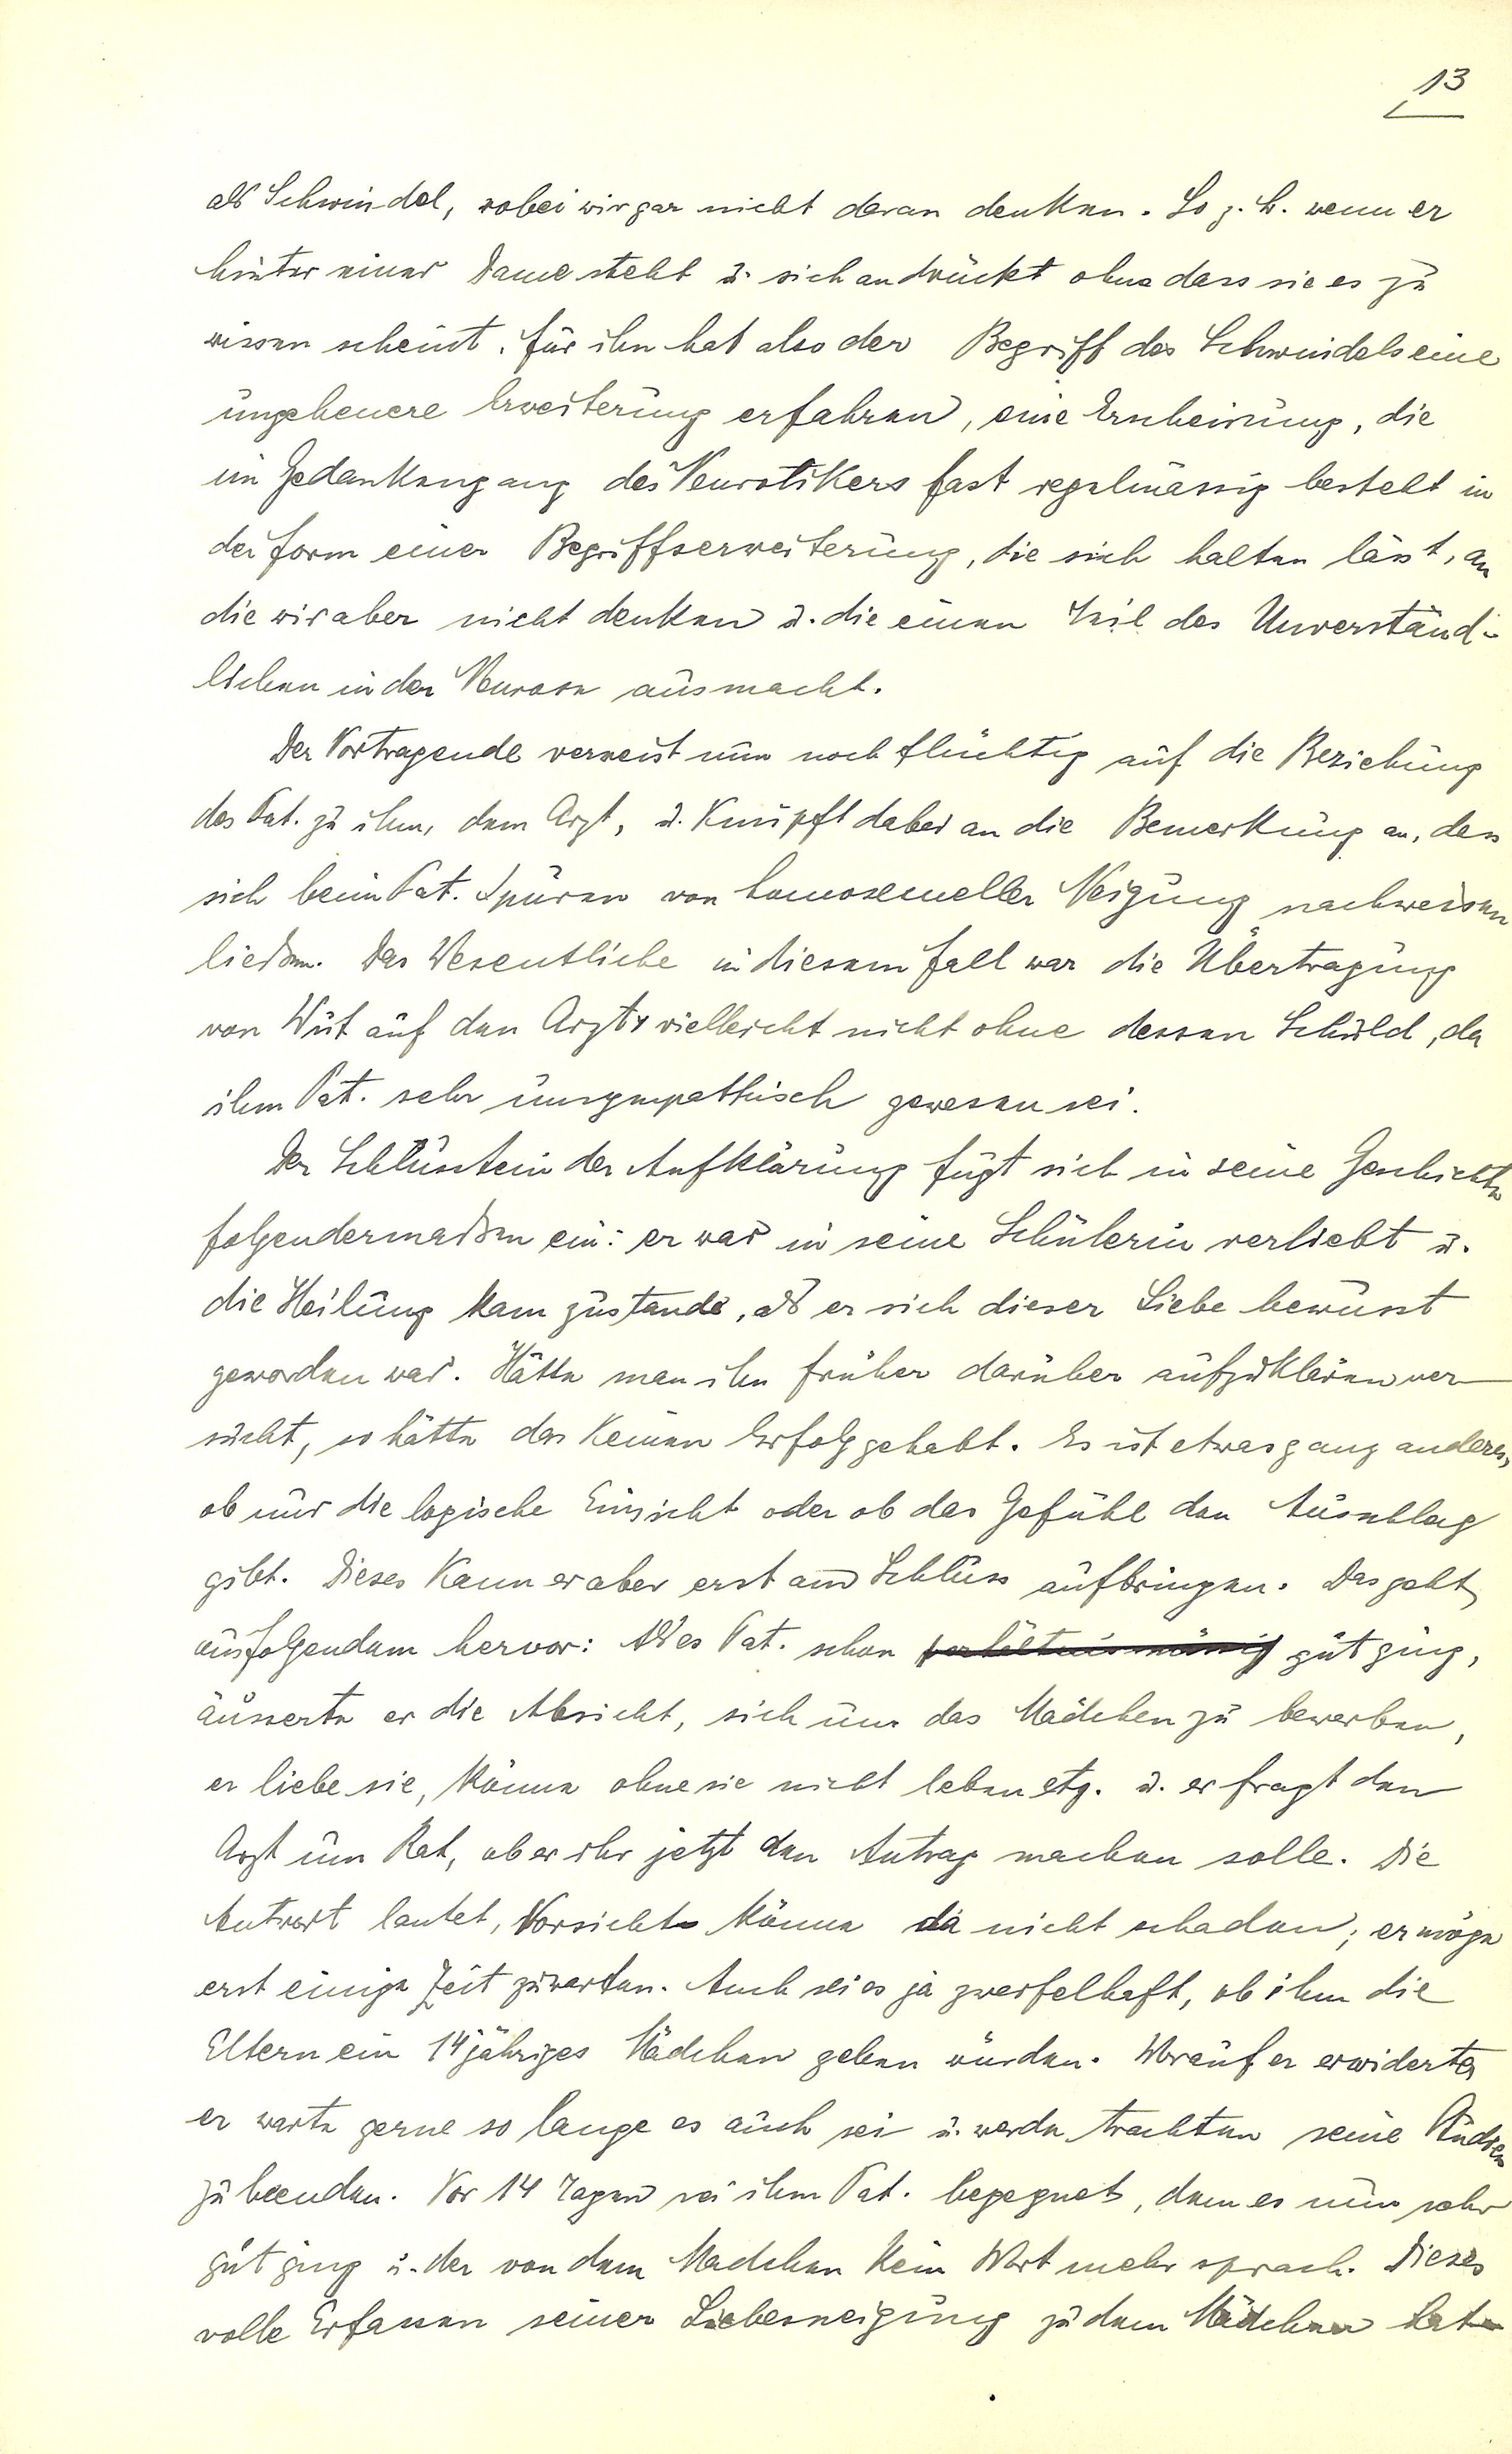 13
als Schwindel, wobei wir gar nicht daran denken. So z. B. wenn er
hinter einer Dame steht u. sich andrückt ohne dass sie es zu
wissen scheint. Für ihn hat also der Begriff des Schwindels eine
ungeheuere Erweiterung erfahren, eine Erscheinung, die
im Gedankengang des Neurotikers fast regelmässig besteht in
der Form einer Begriffserweiterung, die sich halten lässt, an
die wir aber nicht denken u. die einen Teil des Unverständ-
lichen in der Neurose ausmacht.
Der Vortragende verweist nun noch flüchtig auf die Beziehung
des Pat. zu ihm, dem Arzt, u. knüpft dabei an die Bemerkung an, dass
sich beim Pat. Spuren von homosexueller Neigung nachweisen
liessen. Das Wesentliche in diesem Fall war die Übertragung
von Wut auf den Arzt, vielleicht nicht ohne dessen Schuld, da
ihm Pat. sehr unsympathisch gewesen sei.
Der Schlusstein der Aufklärung fügt sich in seine Geschichte
folgendermassen ein: er war in seine Schülerin verliebt u.
die Heilung kam zustande, als er sich dieser Liebe bewusst
geworden war. Hätte man ihn früher darüber aufzuklären ver-
sucht, so hätte das keinen Erfolg gehabt. Es ist etwas ganz anderes,
ob nur die logische Einsicht oder ob das Gefühl den Ausschlag
gibt. Dieses kann er aber erst am Schluss aufbringen. Das geht
aus folgendem hervor: Als es Pat. schon verhältnismässig gut ging,
äusserte er die Absicht, sich um das Mädchen zu bewerben,
er liebe sie, könne ohne sie nicht leben etz. u. er fragt den
Arzt um Rat, ob er ihr jetzt den Antrag machen solle. Die
Antwort lautet, Vorsicht könne da nicht schaden; er möge
erst einige Zeit zuwarten. Auch sei es ja zweifelhaft, ob ihm die
Eltern ein 14jähriges Mädchen geben würden. Worauf er erwiderte,
er warte gerne so lange es auch sei u. werde trachten seine Studien
zu beenden. Vor 14 Tagen sei ihm Pat. begegnet, dem es nun sehr
gut ging u. der von dem Mädchen kein Wort mehr sprach. Dieses
volle Erfassen seiner Liebesneigung zu dem Mädchen hat